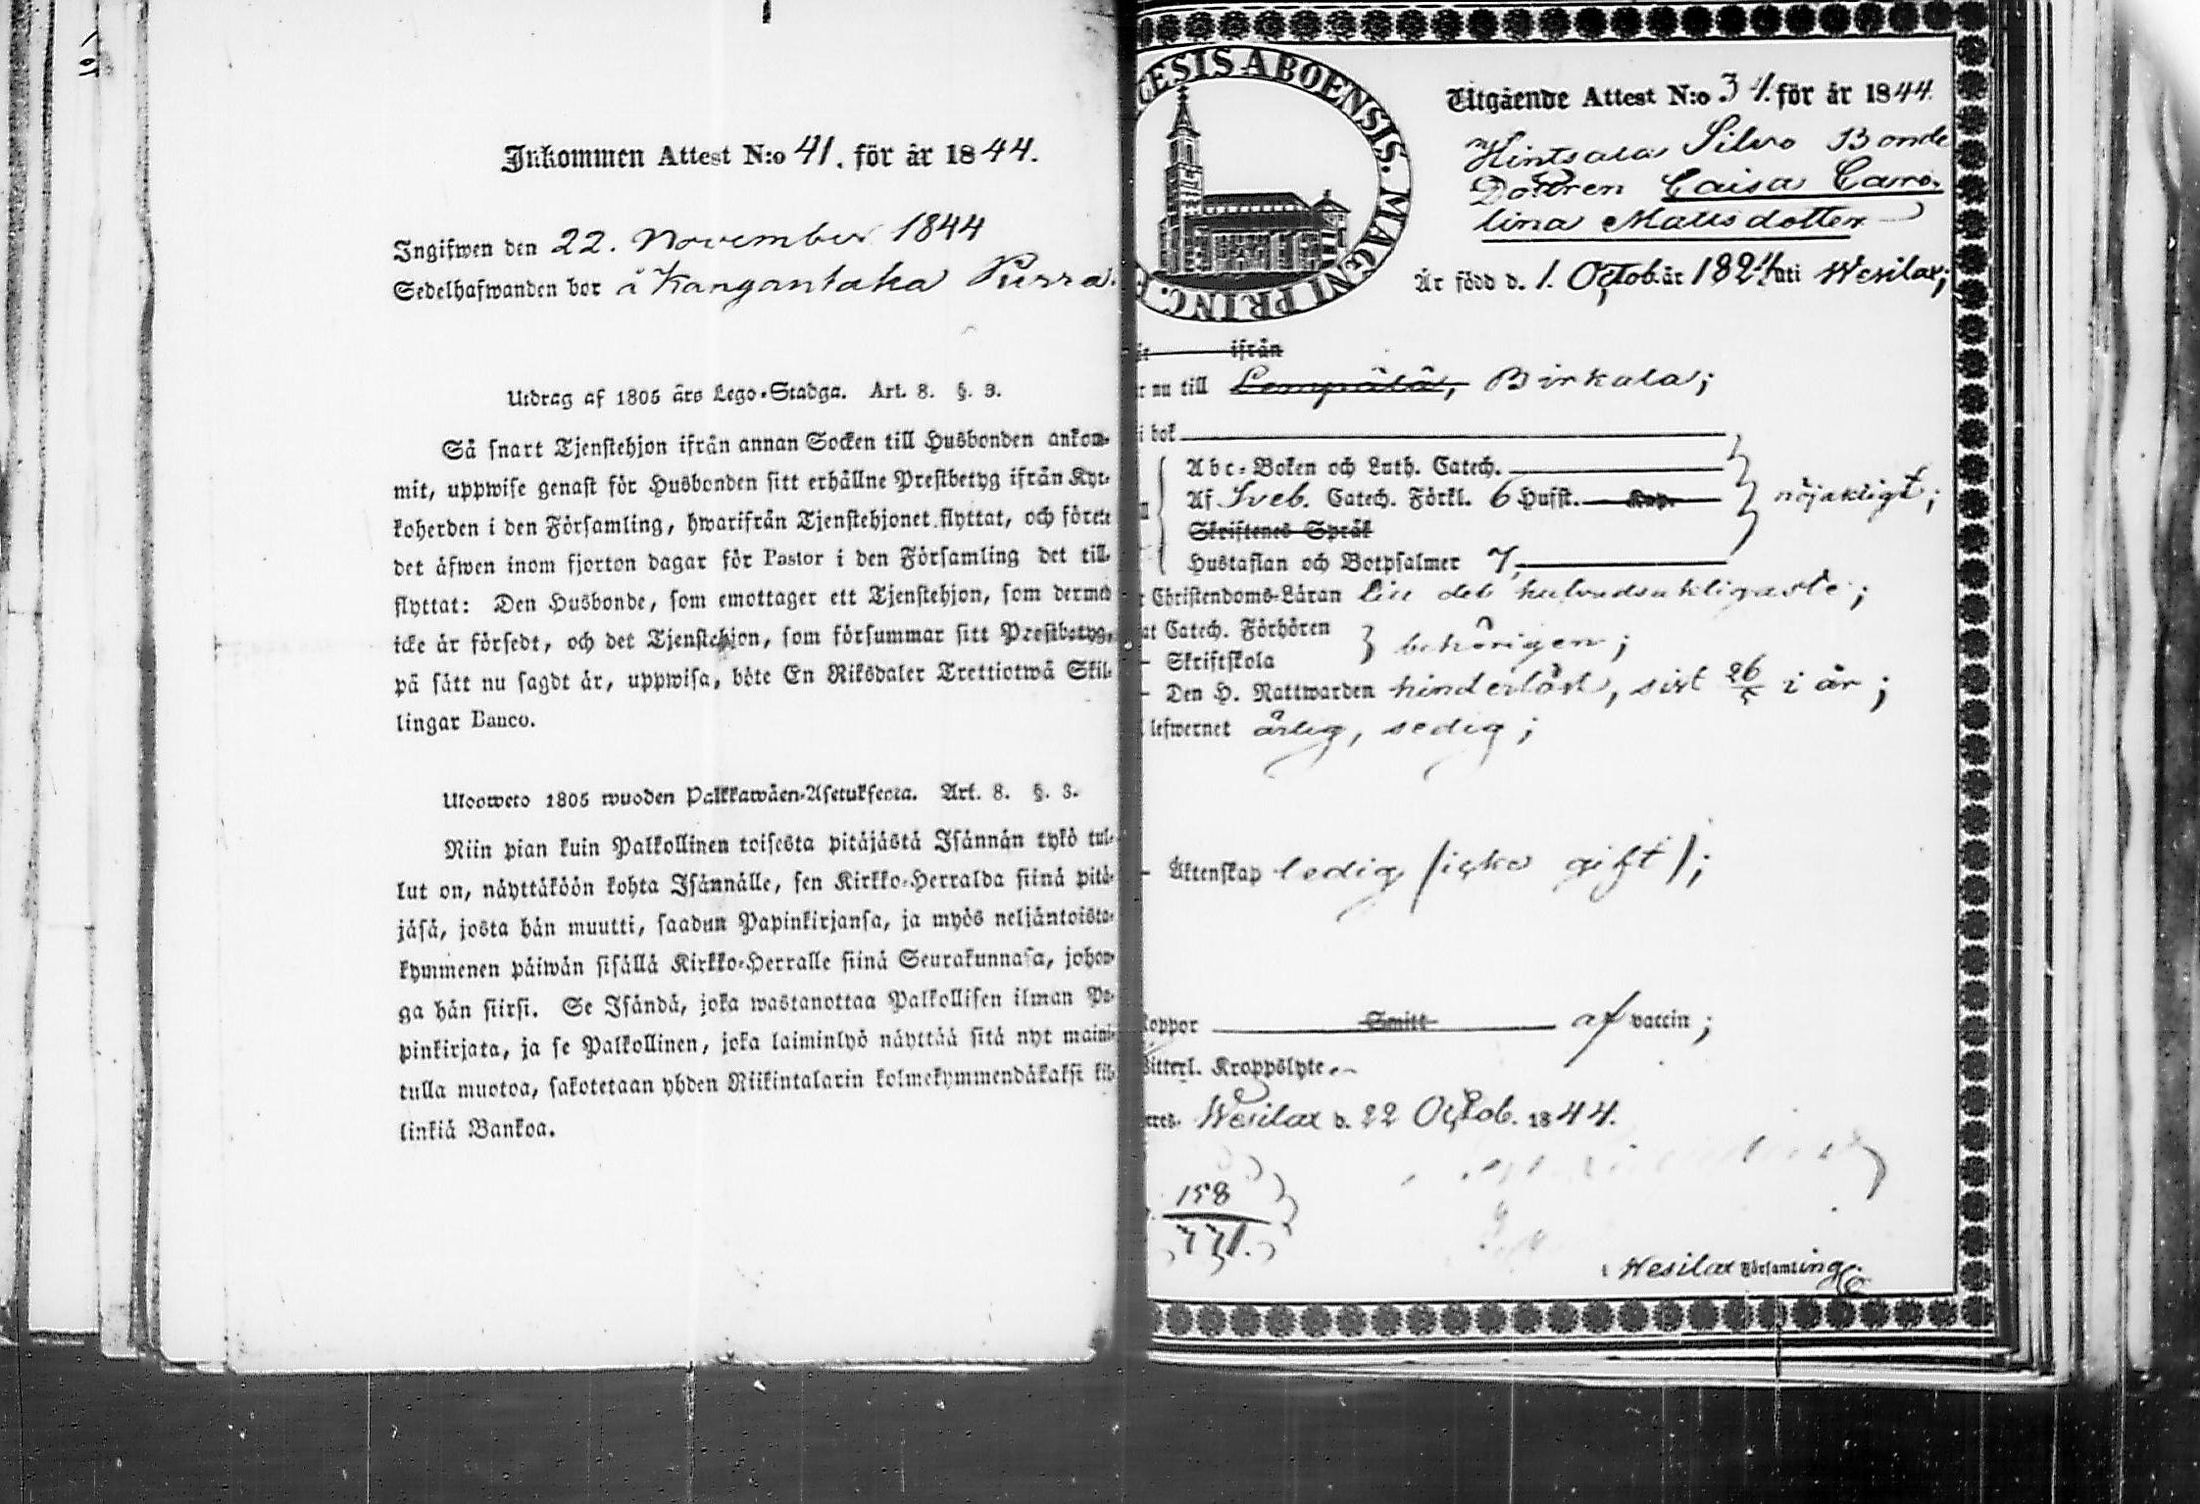 Inkommen Attest N:o 41. för år 1844.
Ingifwen den 22. November 1844
Sedelhafwanden bor å Kangantaka Pirra.
Utdrag af 1805 års Lego-Stadga. Art. 8. §. 3.
Så snart Tjenstehjon ifrån annan Socken till Husbonden ankom-
mit, uppwise genast för Husbonden sitt erhållne Prestbetyg ifrån Kyr-
koherden i den Församling, hwarifrån Tjenstehjonet flyttat, och förete
det äfwen inom fjorton dagar för Pastor i den Församling det till-
flyttat: Den Husbonde, som emottager ett Tjenstehjon, som dermed
icke är försedt, och det Tjenstehjon, som försummar sitt Prestbetyg,
på sätt nu sagdt är, uppwisa, böte En Riksdaler Trettiotwå Skil-
lingar Banco.
Uloosweto 1805 wuoden Palkkawäen-Asetuksesta. Art. 8. §. 3.
Niin pian kuin Palkollinen toisesta pitäjästä Isännän tykö tul-
lut on, näyttäköön kohta Isännälle, sen Kirkko-Herralda siinä pitä-
jäsä, josta hän muutti, saadun Papinkirjansa, ja myös neljäntoista-
kymmenen päiwän sisällä Kirkko-Herralle siinä Seurakunnasa, johon-
ga hän siirsi. Se Isändä, joka wastanottaa Palkollisen ilman Pa-
pinkirjata, ja se Palkollinen, joka laiminlyö näyttää sitä nyt maini-
tulla muotoa, sakotetaan yhden Riikintalarin kolmekymmendäkaksi kil-
linkiä Bankoa.
CESIS ABOENSIS. MAGNI PRINC. F
Utgående Attest N:o 34. för år 1844.
Hintsala Silvo Bonde
Dottren Caisa Caro-
lina Mattsdotter
Är född d. 1. Octob. år 1824 uti Wesilax;
ifrån
r nu till Lempälä, Birkala;
i bok
Abc-Boken och Luth. Catech.
Af Sveb. Catech. Förkl. 6 Hufst. Kap. nöjaktigt;
Skriftenes Språk
Hustaflan och Botpsalmer 7,
Christendoms-Läran till det hufvudsakligaste;
at Catech. Förhören
Skriftskola behörigen;
- Den H. Nattwarden hinderlöst, sist 26/5 i år;
lefwernet ärlig, sedig;
- Äktenskap ledig /icke gift/;
koppor Smitt af vaccin;
Witterl. Kroppslyte
Wesilax d. 22 Octob. 1844.
158
771.
i Wesilax Församling